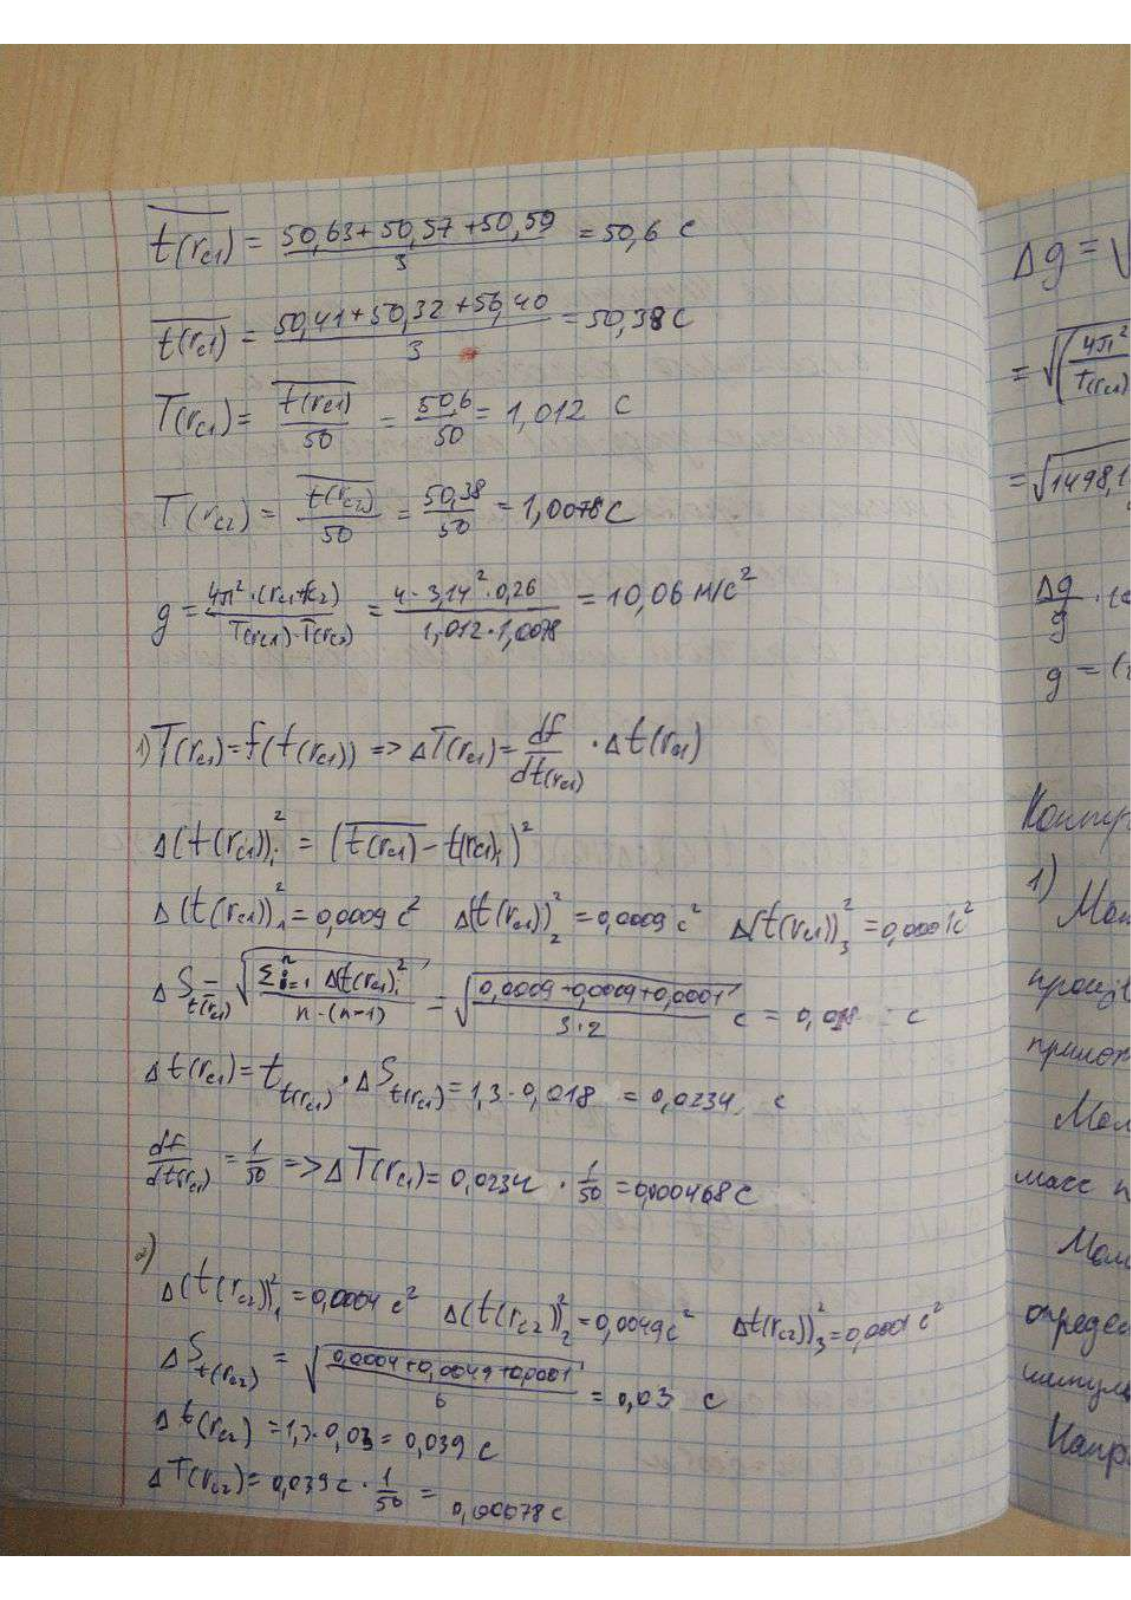 t(rc1) = (50,63+50,57+50,59)/3 = 50,6 с
t(rc1) = (50,41+50,32+50,40)/3 = 50,38 с
T(rc1) = t(rc1)/50 = 50,6/50 = 1,012 с
T(rc2) = t(rc2)/50 = 50,38/50 = 1,0078 с
g = 4π²·(rc1+rc2)/(T(rc1)·T(rc2)) = 4·3,14²·0,26/(1,012·1,0078) = 10,06 м/с²
1) T(rc1) = f(t(rc1)) => ΔT(rc1) = df/dt(rc1) · Δt(rc1)
Δ(t(rc1))i² = (t(rc1) - t(rc1)i)²
Δ(t(rc1))1² = 0,0009 с² Δ(t(rc1))2² = 0,0009 с² Δ(t(rc1))3² = 0,0001 с²
ΔS t(rc1) = √(Σi=1 n Δt(rc1)i²/(n·(n-1))) = √((0,0009+0,0009+0,0001)/(3·2)) с = 0,018 с
Δt(rc1) = t t(rc1) · ΔS t(rc1) = 1,3·0,018 = 0,0234 с
df/dt(rc1) = 1/50 => ΔT(rc1) = 0,0234 · 1/50 = 0,000468 с
2)
Δ(t(rc2))1² = 0,0004 с² Δ(t(rc2))2² = 0,0049 с² Δt(rc2))3² = 0,0001 с²
ΔS t(rc2) = √((0,0004+0,0049+0,0001)/6) = 0,03 с
Δt(rc2) = 1,3·0,03 = 0,039 с
ΔT(rc2) = 0,039 с · 1/50 = 0,00078 с
Δg = √
= √(4π²/T(rc1)
= √1498,1
Δg/g
g = (
1)
масс